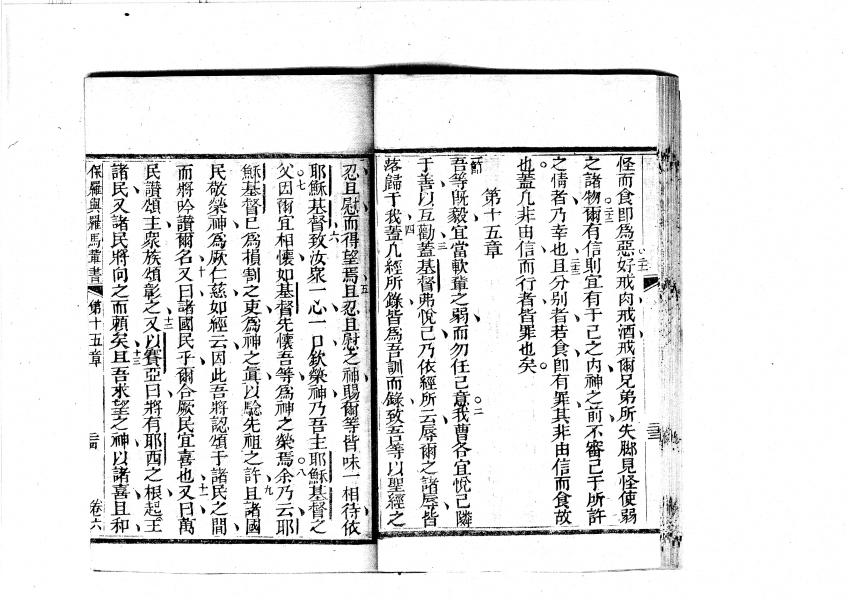 怪而食卽爲惡好戒肉戒酒戒爾兄弟所失脚見怪使弱
二二
之諸物爾有信則宜有于己之内神之前不審己于所許
二三
之情者乃幸也且分别者若食卽有罪其非由信而食故
也蓋凡非由信而行者皆罪也矣
第十五章
節
吾等旣毅宜當軟輩之弱而勿任己意我曹各宜悅己隣
二
于善以互勸蓋基督弗悅己乃依經所云辱爾之諸辱皆
三
落歸于我蓋凡經所錄皆爲吾訓而錄致吾等以聖經之
四
忍且慰而得望焉且忍且慰之神賜爾等皆味一相待依
五
耶穌基督致汝衆一心一口欽榮神乃吾主耶穌基督之
六
父因爾宜相懷如基督先懷吾等爲神之榮焉余乃云耶
七
八
穌基督已爲損割之吏爲神之眞以騐先祖之許且諸國
九
民敬榮神爲厥仁慈如經云因此吾將認頌于諸民之間
而將吟讚爾名又曰諸國民乎爾合厥民宜喜也又曰萬
十
十一
民讚頌主衆族頌彰之又以賽亞曰將有耶西之根起王
十二
諸民又諸民將向之而賴矣且吾求望之神以諸喜且和
十三
保羅與羅馬輩書
第十五章
卷六